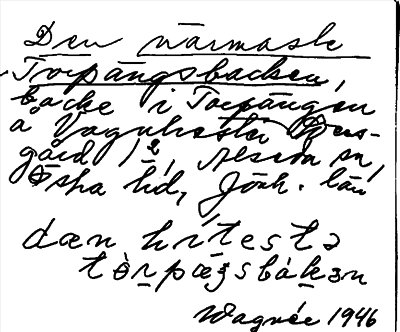 Den närmaste
Torpängsbacken,
backe i Torpängen
å Vagnhester
gård 1², Alseda sn,
Östra hd, Jönk. län
dæn hítestə
tòrpæŋsbàkən
Wagnér 1946